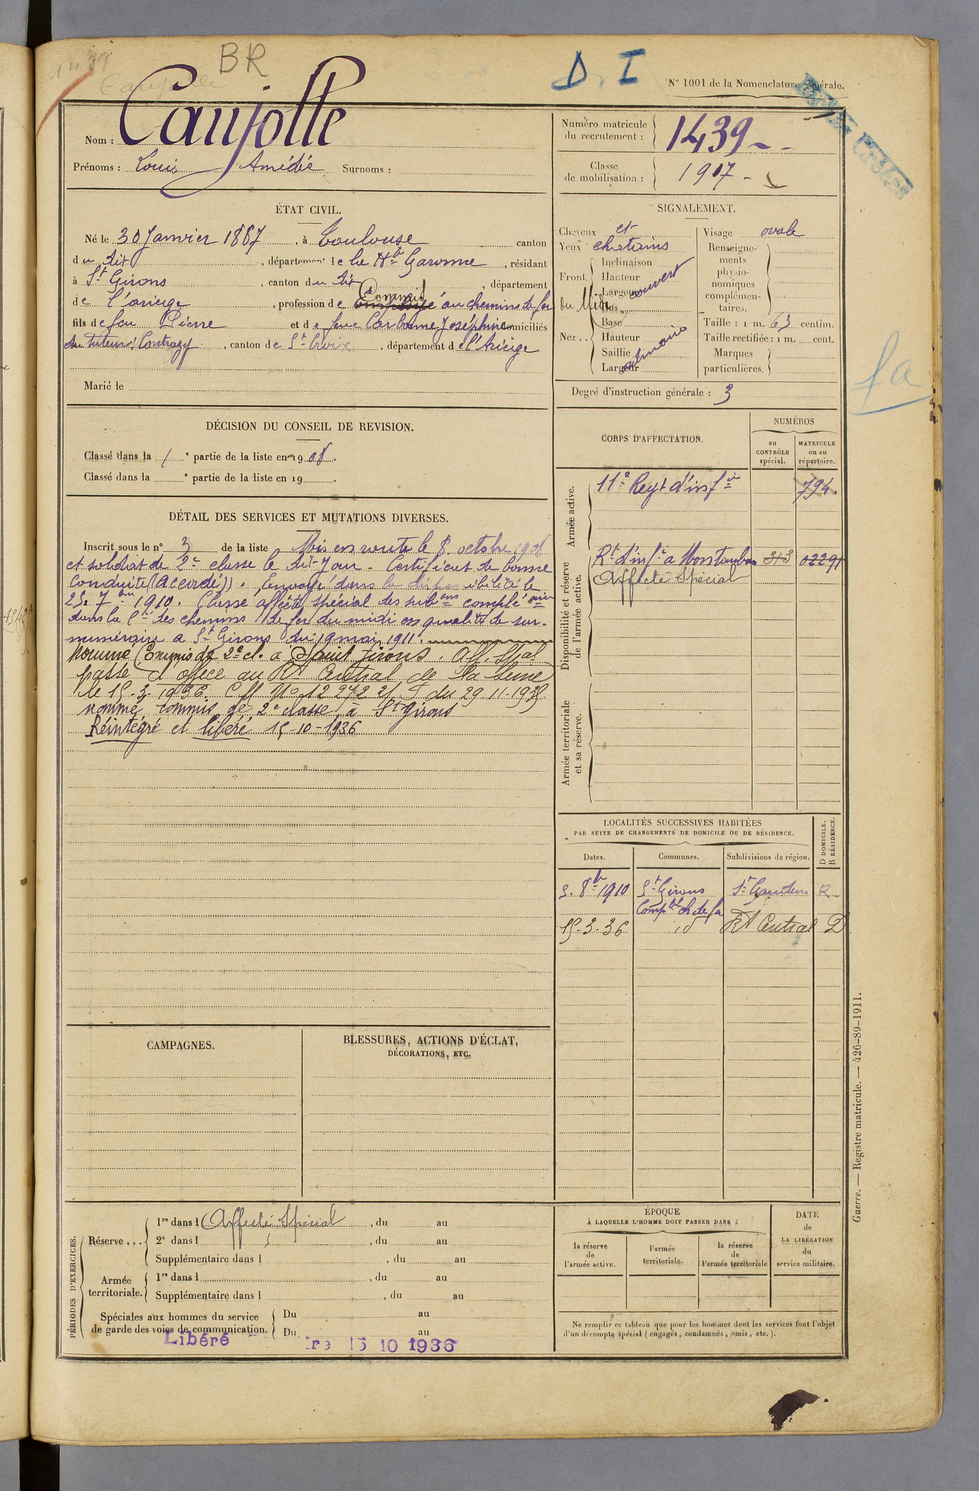 BR
D. I
N° 1001 de la Nomenclature générale.
Nom : Caujolle
Prénoms : Louis Amédée Surnoms :
Numéro matricule du recrutement : 1439
Classe de mobilisation : 1907
ÉTAT CIVIL.
Né le 30 Janvier 1887, à Toulouse canton
du dit, département de la Hte Garonne, résidant
à St Girons, canton du dit, département
de l'ariège, profession de Commis au chemins de fer
fils de feu Pierre et de feue Carbonne Joséphine domiciliés
, canton de Ste Croix, département de l'Ariège
Marié le
SIGNALEMENT.
Cheveux et
Yeux chatains
Front. Inclinaison
Hauteur
Largeur
couvert
du Midi
Nez... Dos
Base
Hauteur
Saillie
Largeur
ordinaire
Visage ovale
Renseignements physionomiques complémentaires.
Taille : 1 m. 63 centim.
Taille rectifiée : 1 m. cent.
Marques particulières.
Degré d'instruction générale : 3
fa
DÉCISION DU CONSEIL DE REVISION.
Classé dans la 1e partie de la liste en 1908.
Classé dans la e partie de la liste en 19 .
DÉTAIL DES SERVICES ET MUTATIONS DIVERSES.
Inscrit sous le n° 3 de la liste Mis en route le 8 octobre 1908
et soldat de 2e classe le dit jour. Certificat de bonne
conduite (accordé). Envoyé dans la disponibilité le
25 7bre 1910. Classé affecté spécial des subons complémentaire
dans la Cie des chemins de fer du midi en qualité de sur-
numéraire à St Girons du 19 mai 1911.
Nommé Commis de 2e cl. à Saint Girons. Aff. Spal
passé d'office au Rt Central de la Seine
le 15-3-1936. du 29-11-1935
nommé commis de 2e classe, à St Girons
Réintégré et libéré 15-10-1936
CORPS D'AFFECTATION.
NUMÉROS
au CONTRÔLE spécial.
MATRICULE ou au répertoire.
Armée active.
11e Regt d'infie 794
Disponibilité et réserve de l'armée active.
Rt d'infie à Montauban 313 02291
Affecté Spécial
Armée territoriale et sa réserve.
LOCALITÉS SUCCESSIVES HABITÉES
PAR SUITE DE CHANGEMENTS DE DOMICILE OU DE RÉSIDENCE.
Dates. Communes. Subdivisions de région. D DOMICILE. R RÉSIDENCE.
5. 8bre 1910 St Girons St Gaudens R
15-3-36 id Rt Central D
CAMPAGNES.
BLESSURES, ACTIONS D'ÉCLAT,
DÉCORATIONS, ETC.
PÉRIODES D'EXERCICES.
Réserve... 1re dans l Affecté Spécial , du au
2e dans l , du au
Supplémentaire dans l , du au
Armée territoriale. 1re dans l , du au
Supplémentaire dans l , du au
Spéciales aux hommes du service de garde des voies de communication. Du au
Du au
Libéré 15 10 1936
ÉPOQUE
À LAQUELLE L'HOMME DOIT PASSER DANS :
la réserve de l'armée active.
l'armée territoriale.
la réserve de l'armée territoriale
DATE de LA LIBÉRATION du service militaire.
Ne remplir ce tableau que pour les hommes dont les services font l'objet
d'un décompte spécial (engagés, condamnés, omis, etc.).
Guerre. — Registre matricule. — 426-89-1911.